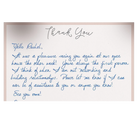 Thank You
Hello David,
It was a pleasure seeing you again at our open
house the other week! You're always the first person
I think of when I am out networking and
building relationships. Please let me know if I can
ever be of assistance to you or anyone you know!
See you soon!